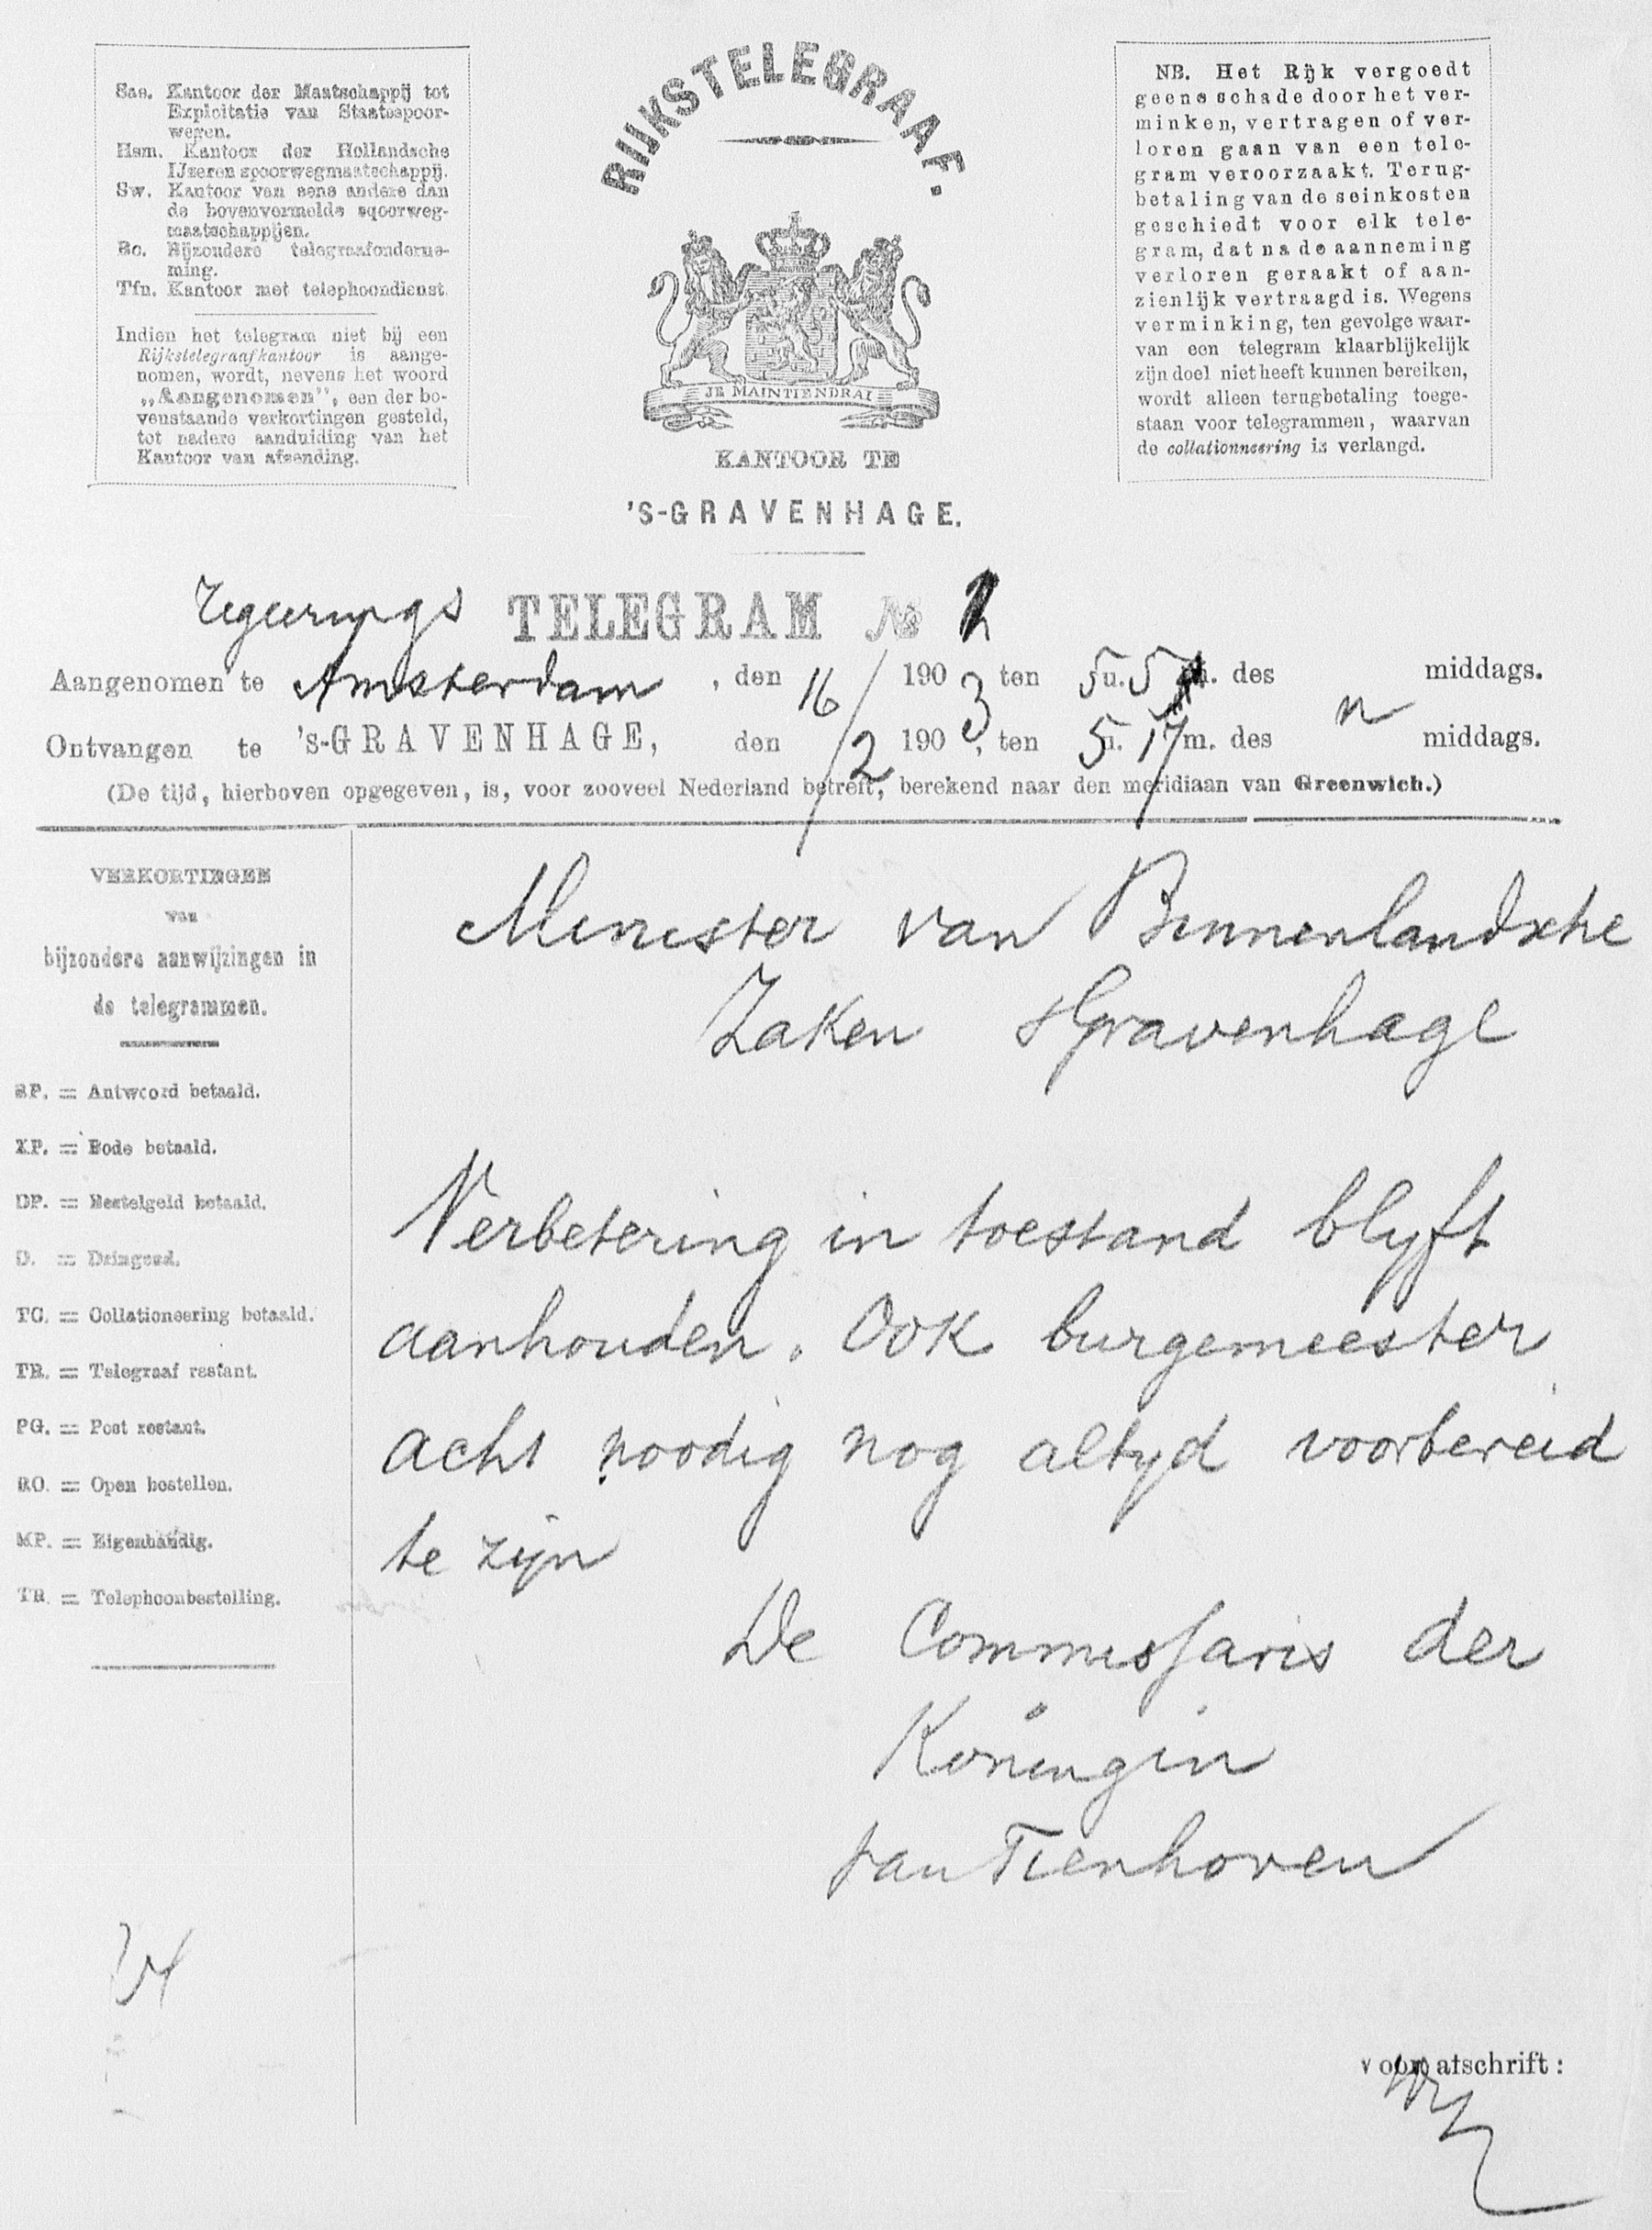 Sas. Kantoor der Maatschappij tot
Exploitatie van Staatsspoor-
wegen.
Hsm. Kantoor der Hollandsche
IJzeren spoorwegmaatschappij.
Sw. Kantoor van eene andere dan
de bovenvermelde spoorweg-
maatschappijen.
Bo. Bijzondere telegraafonderne-
ming.
Tfn. Kantoor met telephoondienst
Indien het telegram niet bij een
Rijkstelegraafkantoor is aange-
nomen, wordt, nevens het woord
„Aangenomen”, een der bo-
venstaande verkortingen gesteld,
tot nadere aanduiding van het
Kantoor van afzending.
RIJKSTELEGRAAF.
JE MAINTIENDRAI
KANTOOR TE
'S-GRAVENHAGE.
NB. Het Rijk vergoedt
geene schade door het ver-
minken, vertragen of ver-
loren gaan van een tele-
gram veroorzaakt. Terug-
betaling van de seinkosten
geschiedt voor elk tele-
gram, dat na de aanneming
verloren geraakt of aan-
zienlijk vertraagd is. Wegens
verminking, ten gevolge waar-
van een telegram klaarblijkelijk
zijn doel niet heeft kunnen bereiken,
wordt alleen terugbetaling toege-
staan voor telegrammen, waarvan
de collationneering is verlangd.
Regeerings TELEGRAM No
Aangenomen te Amsterdam, den 16/2 1903 ten 5 u. des middags.
Ontvangen te 's-GRAVENHAGE, den 190, ten 5 u. 17 m. des n middags.
(De tijd, hierboven opgegeven, is, voor zooveel Nederland betreft, berekend naar den meridiaan van Greenwich.)
VERKORTINGEN
van
bijzondere aanwijzingen in
de telegrammen.
RP. = Antwoord betaald.
XP. = Bode betaald.
DP. = Bestelgeld betaald.
D. = Dringend.
TC. = Collationeering betaald.
TR. = Telegraaf restant.
PG. = Post restant.
RO. = Open bestellen.
MP. = Eigenhandig.
TR = Telephoonbestelling.
Minister van Binnenlandsche
Zaken sGravenhage
Verbetering in toestand blyft
aanhouden. Ook burgemeester
acht noodig nog altyd voorbereid
te zijn
De Commissaris der
Koningin
van Tienhoven
voor afschrift: